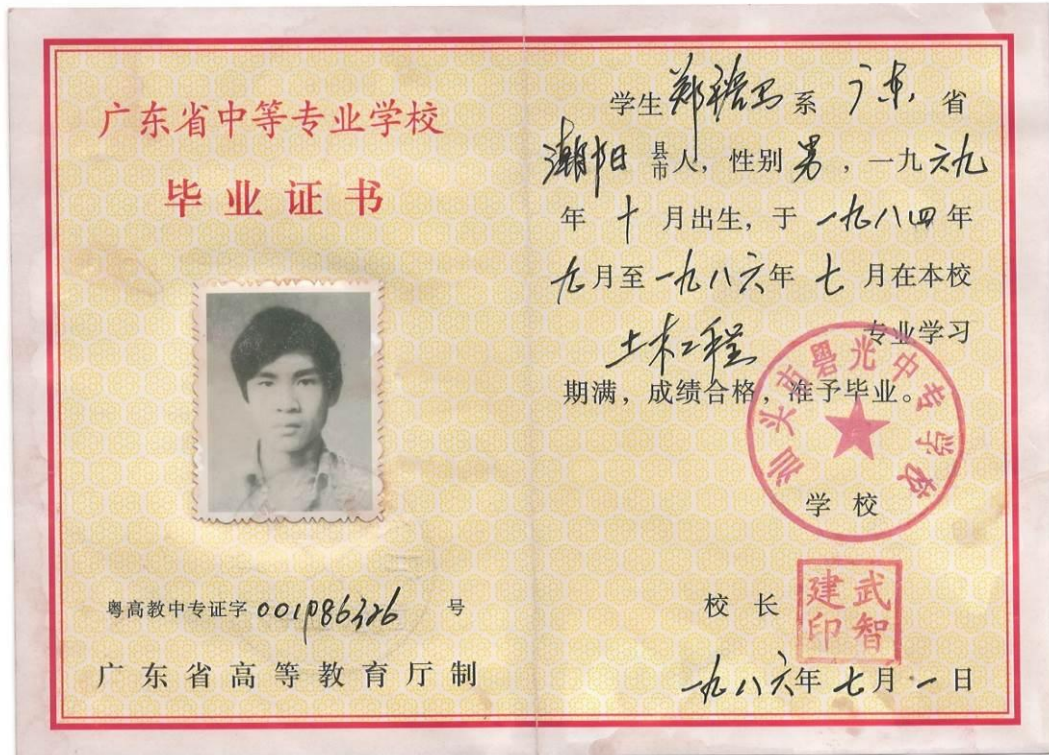 广东省中等专业学校
毕业证书
粤高教中专证字 号
广东省高等教育厅制
学生郑 系 广东 省
潮阳 县市人，性别 男，一九六九
年 十 月出生，于 一九八四年
九月至一九八六年 七 月在本校
土木工程 专业学习
期满，成绩合格，准予毕业。
汕头市粤光中专学校
学校
校长
武智建印
一九八六年七月一日